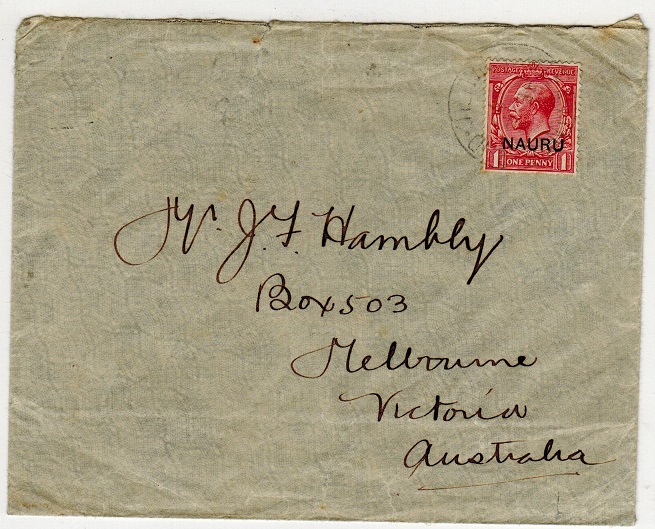 POSTAGE REVENUE
NAURU
1 ONE PENNY 1
Mr. J. F. Hambly
Box 503
Melbourne
Victoria
Australia